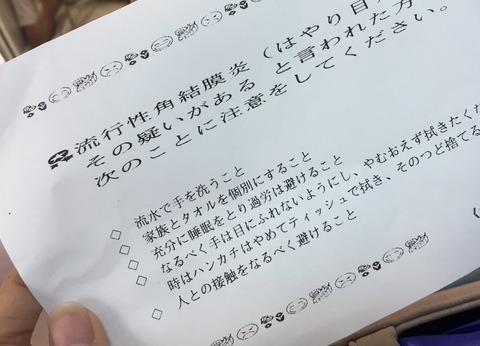 流行性角結膜炎（はやり目
その疑いがある と言われた方
次のことに注意をしてください。
◇ 流水で手を洗うこと
◇ 家族とタオルを個別にすること
◇ 充分に睡眠をとり過労は避けること
◇ なるべく手は目にふれないようにし、やむおえず拭きたくな
時はハンカチはやめてティッシュで拭き、そのつど捨てる
◇ 人との接触をなるべく避けること
（